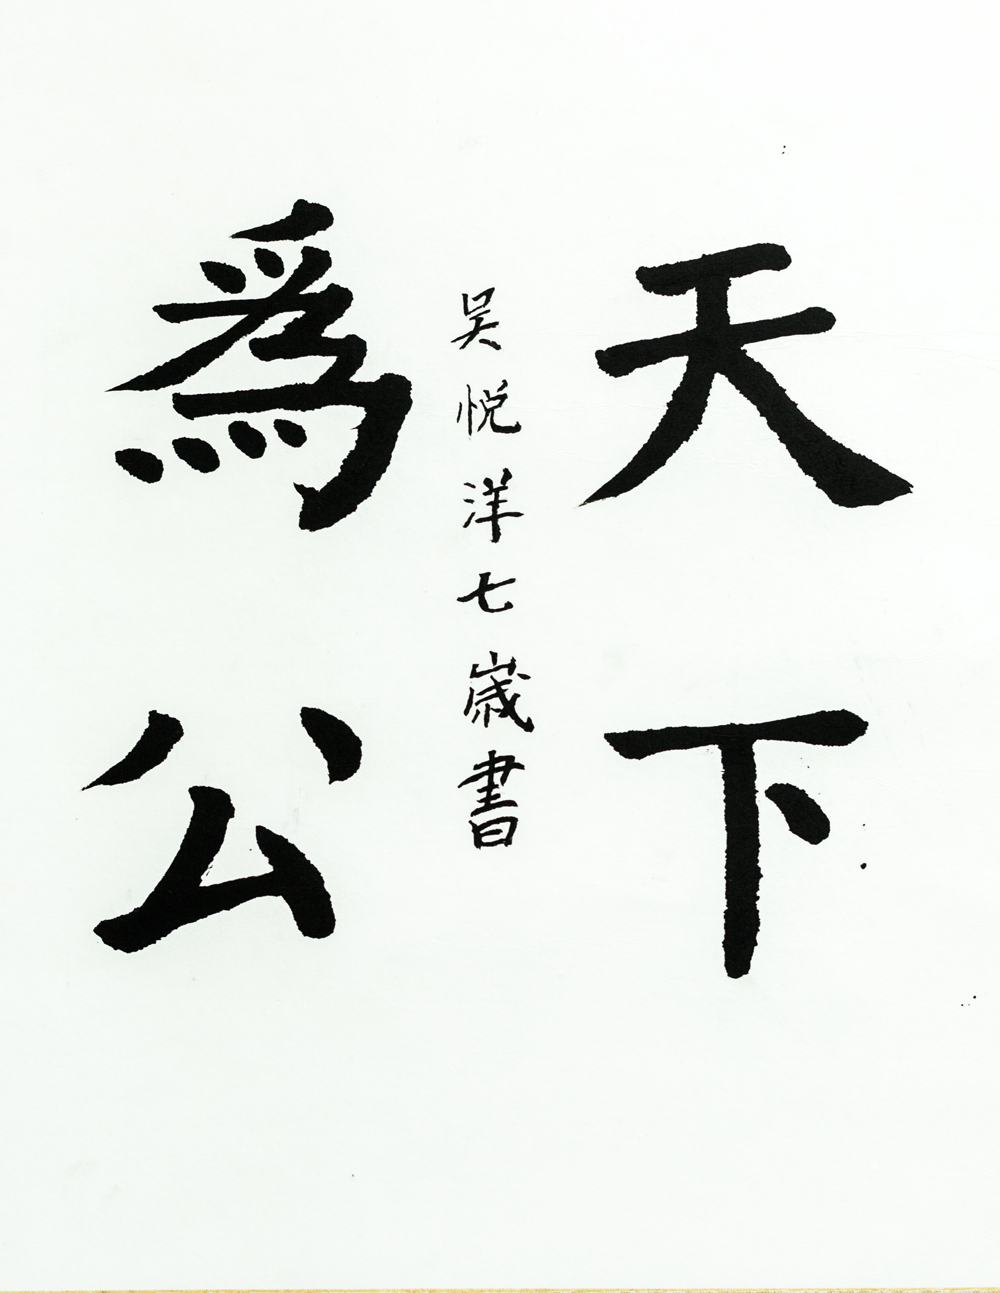 天下
爲公
吴悦洋七歲書